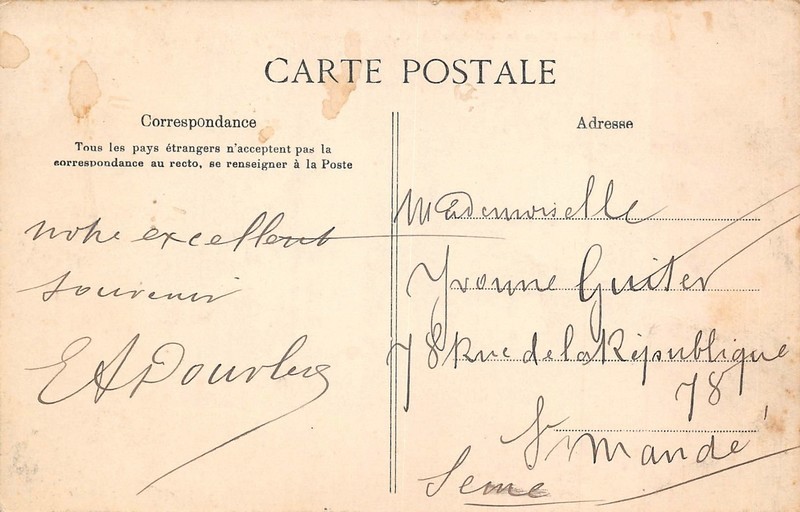 CARTE POSTALE
Correspondance
Tous les pays étrangers n'acceptent pas la
correspondance au recto, se renseigner à la Poste
notre excellent
souvenir
E A
Adresse
Mademoiselle
Yvonne Guiter
78 Rue de la République
78
St Mandé
Seine